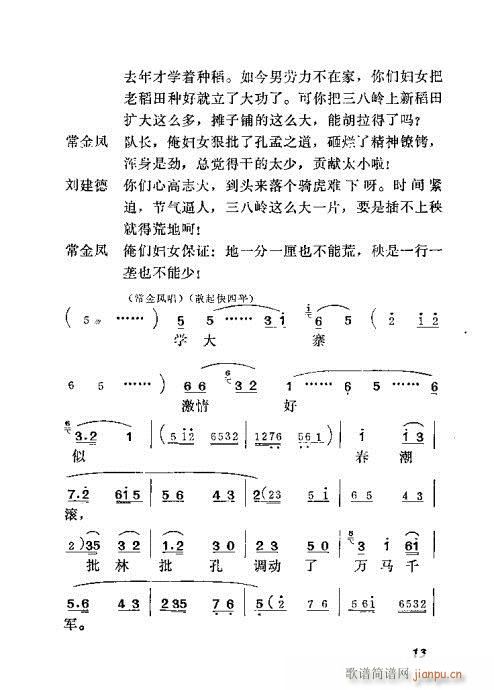 去年才学着种稻。如今男劳力不在家，你们妇女把
老稻田种好就立了大功了。可你把三八岭上新稻田
扩大这么多，摊子铺的这么大，能胡拉得了吗？
常金凤 队长，俺妇女狠批了孔孟之道，砸烂了精神镣铐，
浑身是劲，总觉得干的太少，贡献太小啦！
刘建德 你们心高志大，到头来落个骑虎难下呀。时间紧
迫，节气逼人，三八岭这么大一片，要是插不上秧
就得荒地呵！
常金凤 俺们妇女保证：地一分一厘也不能荒，秧是一行一
垄也不能少！
（常金凤唱）（散起快四平）
( 5 〃 …… ) 5 5 …… 3 1 6 5 ( 2 1 2
学 大 寨
6 5 …… ) 6 6 3 2 1 …… 6 5 …… 6
激情 好
3.2 1 ( 5 12 6532 1276 561 ) 1 1 3
似 春 潮
7.2 615 5 6 4 3 2 ( 23 5 1 6 5 4 3
滚，
2 ) 35 3 2 1.2 3 0 2 3 5 3 1 61
批 林 批 孔 调动 了 万 马 千
5.6 4 3 235 7 6 5 ( 2 7 6 5 61 6532
军。
13
歌谱简谱网
jianpu.cn